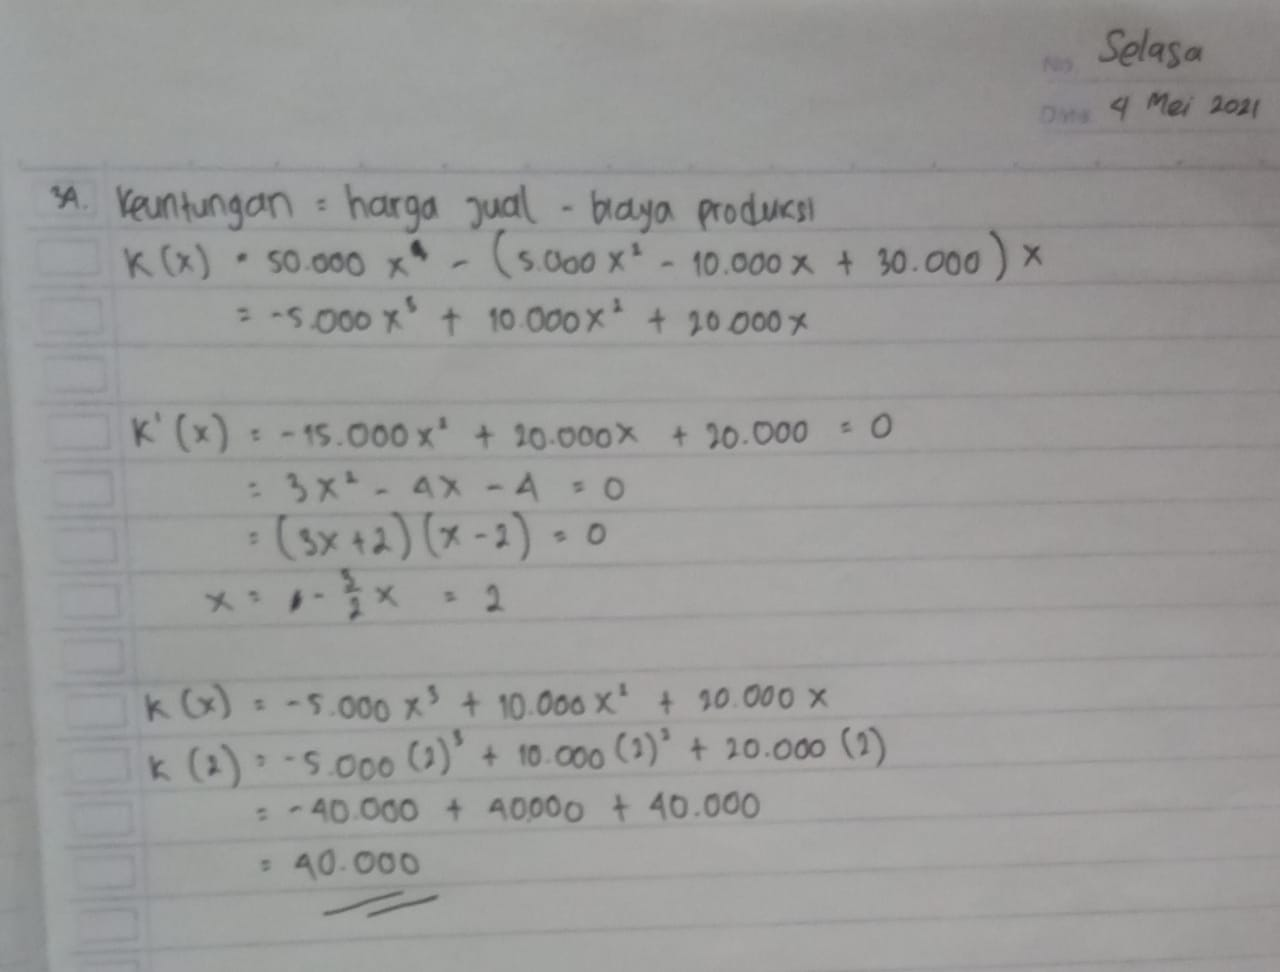 No. Selasa
Date 4 Mei 2021
34. Keuntungan = harga jual - biaya produksi
K(x) = 50.000 x - (5.000x² - 10.000x + 30.000) x
= -5.000x³ + 10.000x² + 20.000x
K'(x) = -15.000x² + 20.000x + 20.000 = 0
= 3x² - 4x - 4 = 0
= (3x+2)(x-2) = 0
x = - 3/2 x = 2
K(x) = -5.000x³ + 10.000x² + 20.000x
K(2) = -5.000(2)³ + 10.000(2)² + 20.000(2)
= -40.000 + 40.000 + 40.000
= 40.000